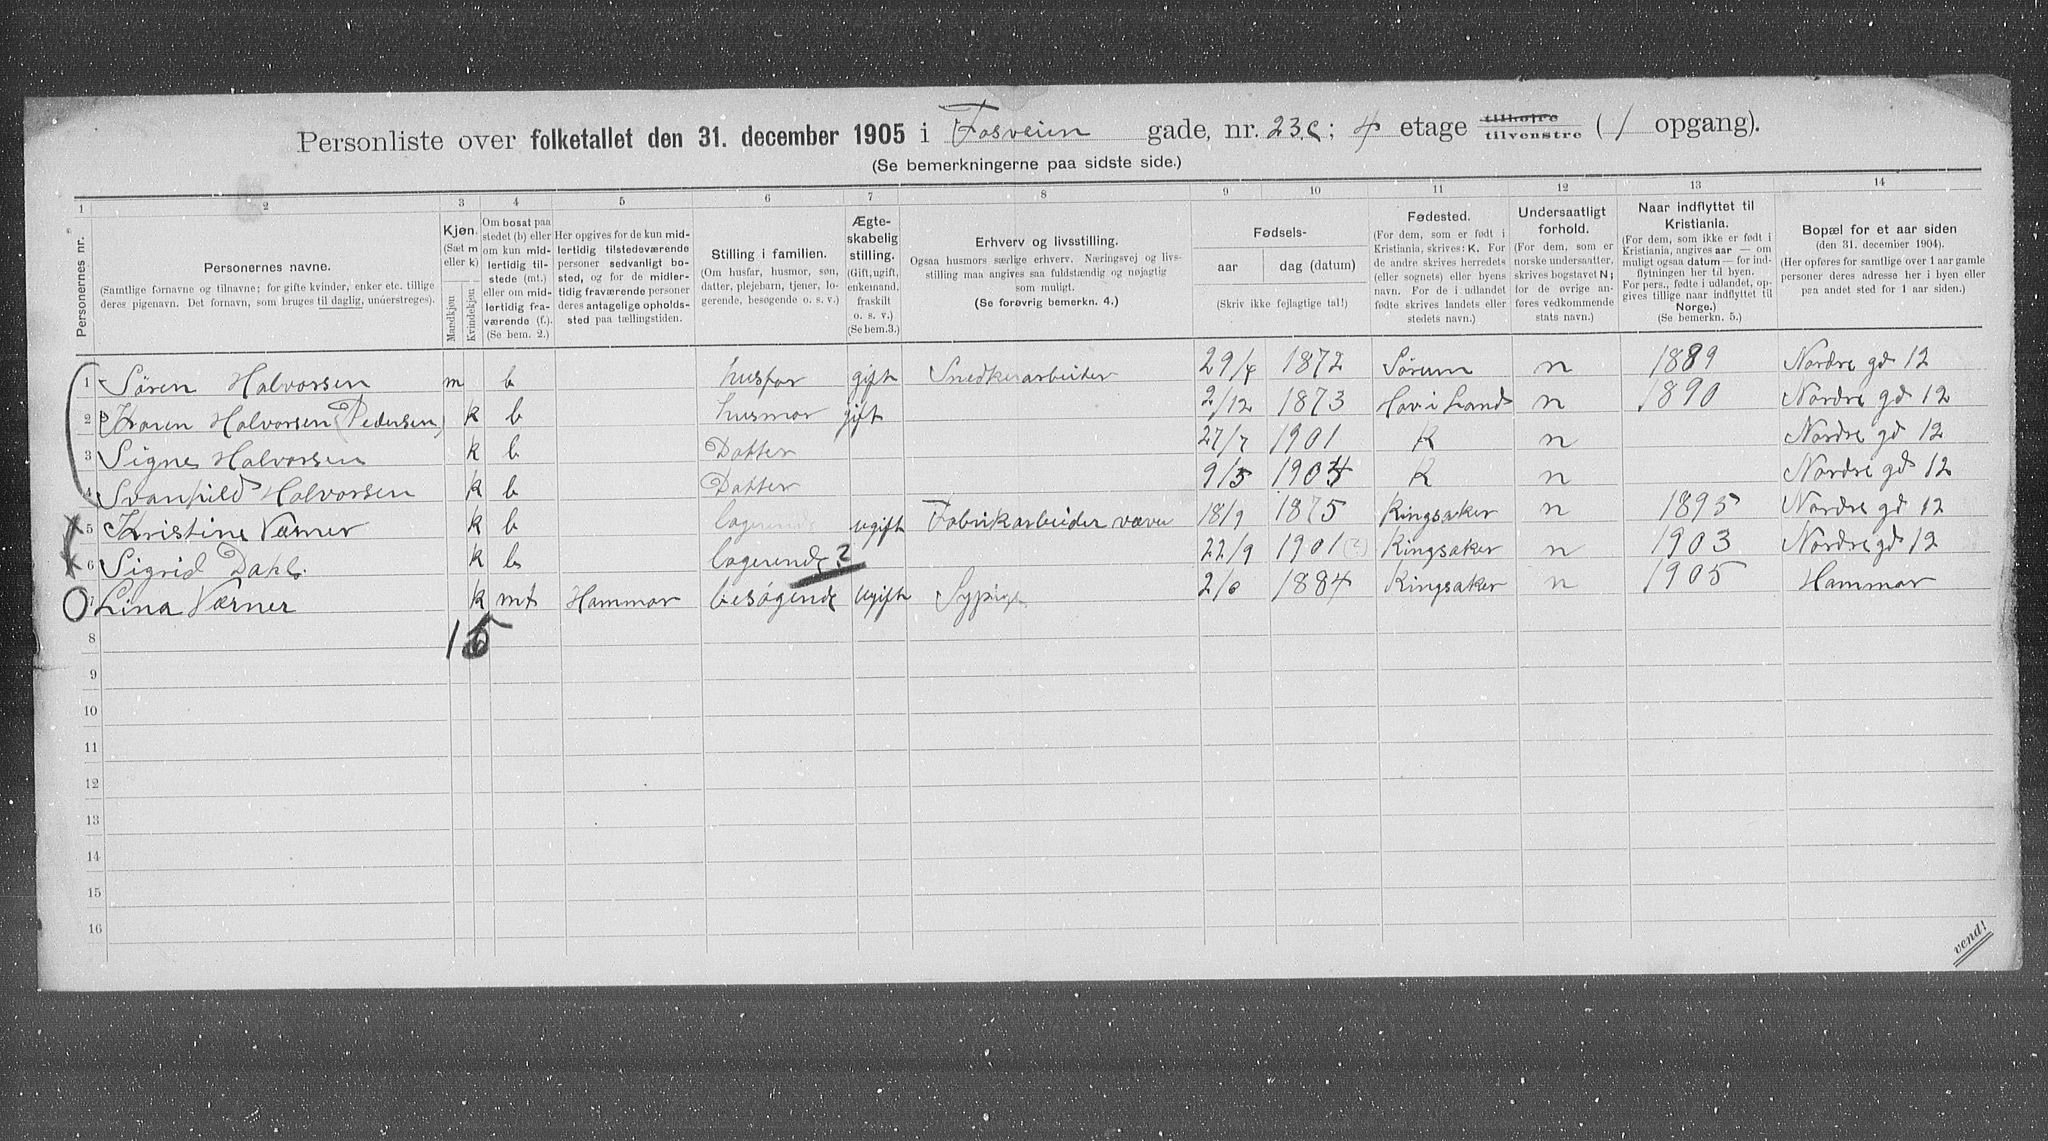 Personliste over folketallet den 31. december 1905 i Fosveien gade, nr. 23c; 4 etage tilhøire tilvenstre (1 opgang).
(Se bemerkningerne paa sidste side.)
1 2 3 4 5 6 7 8 9 10 11 12 13 14
Personernes nr.
Personernes navne.
(Samtlige fornavne og tilnavne; for gifte kvinder, enker etc. tillige deres pigenavn. Det fornavn, som bruges til daglig, understreges).
Kjøn.
(Sæt m eller k)
Mandkjøn
Kvindekjøn
Om bosat paa stedet (b) eller om kun midlertidig tilstede (mt.) eller om midlertidig fraværende (f.). (Se bem. 2.)
Her opgives for de kun midlertidig tilstedeværende personer sedvanligt bosted, og for de midlertidig fraværende personer deres antagelige opholdssted paa tællingstiden.
Stilling i familien.
(Om husfar, husmor, søn, datter, plejebarn, tjener, logerende, besøgende o. s. v.)
Ægteskabelig stilling.
(Gift, ugift, enkemand, fraskilt o. s. v.) (Se bem.3.)
Erhverv og livsstilling.
Ogsaa husmors særlige erhverv. Næringsvej og livsstilling maa angives saa fuldstændig og nøjagtig som muligt.
(Se forøvrig bemerkn. 4.)
Fødsels-
aar dag (datum)
(Skriv ikke fejlagtige tal!)
Fødested.
(For dem, som er født i Kristiania, skrives: K. For de andre skrives herredets (eller sognets) eller byens navn. For de i udlandet fødte skrives landets eller stedets navn.)
Undersaatligt forhold.
(For dem, som er norske undersaatter, skrives bogstavet N; for de øvrige anføres vedkommende stats navn.)
Naar indflyttet til Kristiania.
(For dem, som ikke er født i Kristiania, angives aar — om muligt ogsaa datum — for indflytningen her til byen. For pers., fødte i udlandet, opgives tillige naar indflyttet til Norge.)
(Se bemerkn. 5.)
Bopæl for et aar siden
(den 31. december 1904).
(Her opføres for samtlige over 1 aar gamle personer deres adresse her i byen eller paa andet sted for 1 aar siden.)
1 Søren Halvorsen m b husfar gift Snedkerarbeider 29/4 1872 Sørum n 1889 Nordre gd 12
2 Karen Halvorsen (Pedersen) k b husmor gift 2/12 1873 Hov i Land n 1890 Nordre gd 12
3 Signe Halvorsen k b Datter 27/7 1901 K n Nordre gd 12
4 Svanhild Halvorsen k b Datter 9/5 1904 K n Nordre gd 12
5 Kristine Værner k b logerende ugift Fabrikarbeider væver 18/9 1875 Ringsaker n 1895 Nordre gd 12
6 Sigrid Dahl. k b logerende ? 22/9 1901 (?) Ringsaker n 1903 Nordre gd 12
7 Lina Værner k mt Hammar besøgende ugift Sypige 2/6 1884 Ringsaker n 1905 Hammar
8 1
9
10
11
12
13
14
15
16
vend!